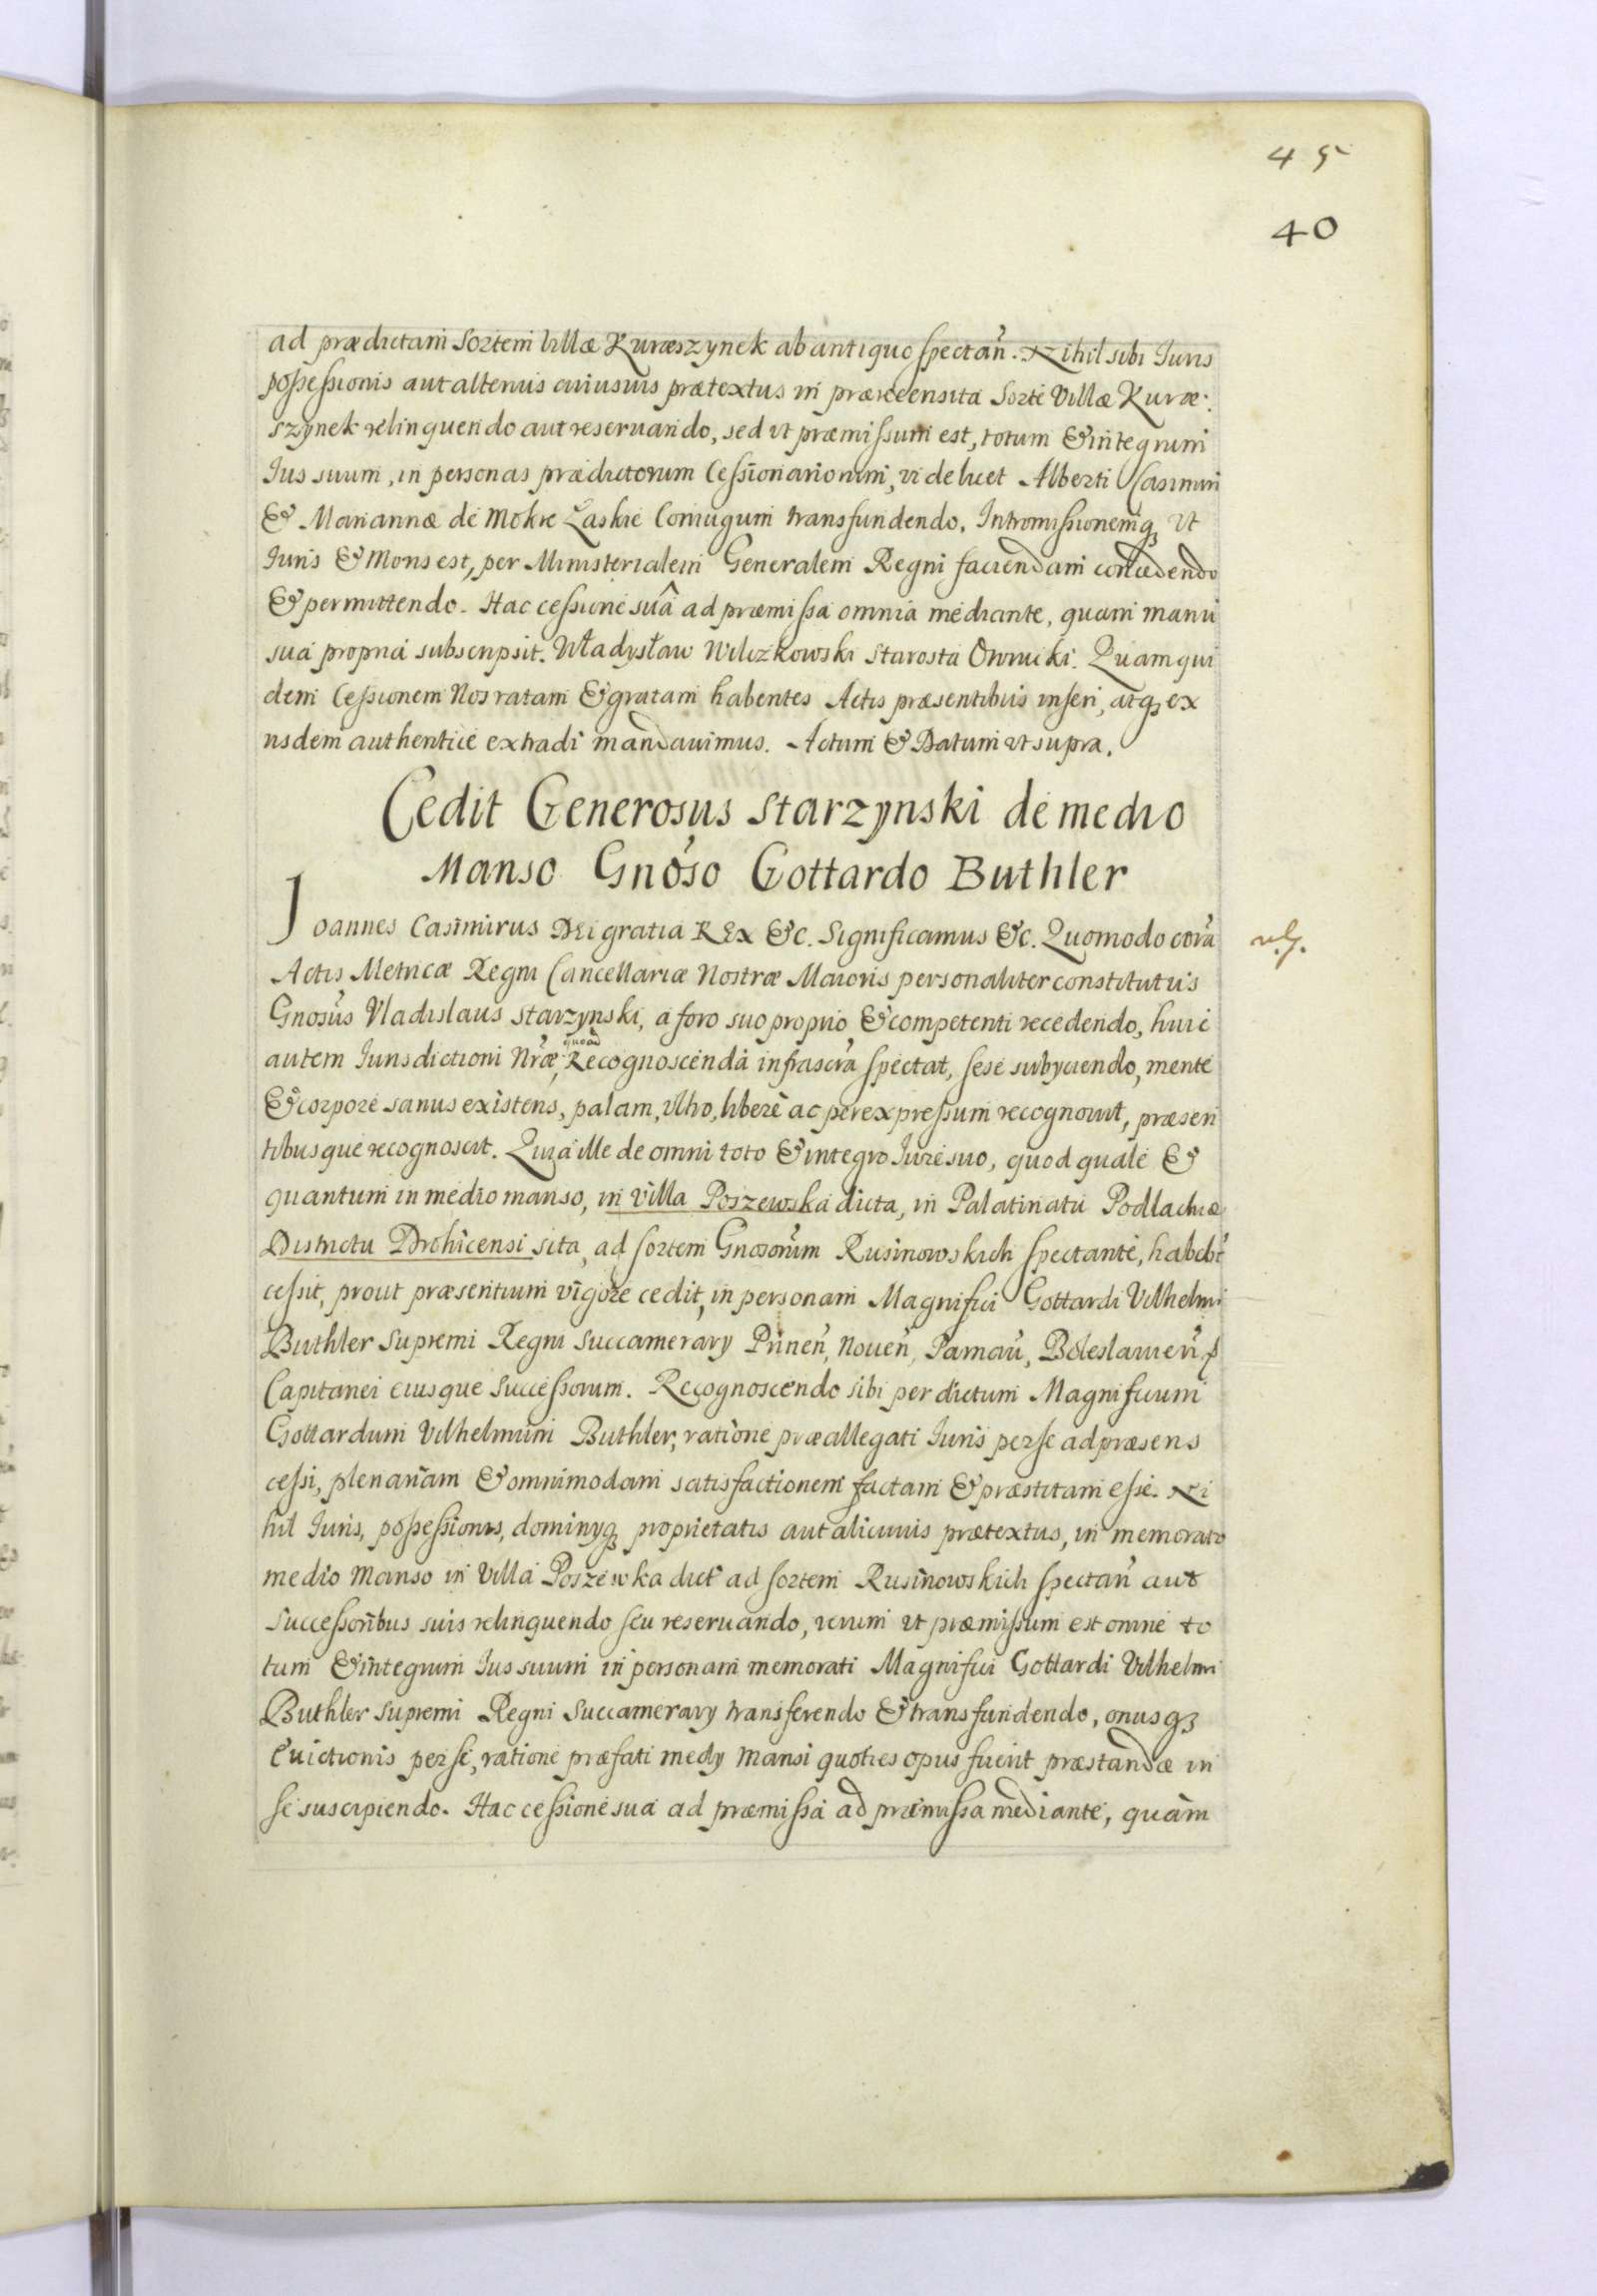 45
40
ad prædictam Sortem Villæ Kuræszynek ab antiquo spectan̄. Nihil sibi Juris
possessionis aut alterius cuiusuis prætextus in præreensita Sorte Villæ Kuræ:
szynek relinquendo aut reseruando, sed ut præmissum est, totum & integrum
Jus suum, in personas prædictorum Cessionariorum, videlicet Alberti Casimiri
& Mariannæ de Mokre Łaskie Coniugum transfundendo. Intromissionemq3 ut
Juris & Moris est, per Ministerialem Generalem Regni faciendam concedendo
& permittendo. Hac cessione suâ ad præmissa omnia mediante, quam manu
sua propria subscripsit. Władysław Wilczkowski Starosta Owrucki. Quam qui
dem Cessionem Nos ratam & gratam habentes Actis præsentibus inseri, atq3 ex
ijsdem authentice extradi mandauimus. Actum & Datum ut supra.
Cedit Generosus Starzynski de medio
Manso Gnōso Gottardo Buthler
Joannes Casimirus DEi gratia REx &c. Significamus &c. Quomodo corā
Actis Metricæ Regni Cancellariæ Nostræ Maioris personaliter constitutus
Gnosūs Vladislaus Starzynski, a foro suo proprio & competenti recedendo, huic
autem Jurisdictioni Nr̄æ, quoad Recognoscenda infrascr̄a spectat, sese subyciendo, mente
& corpore sanus existens, palam, vltro, liberè ac per expressum recognouit, præsen
tibusque recognoscit. Quia ille de omni toto & integro Jure suo, quod quale &
quantum in medio manso, in Villa Poszewska dicta, in Palatinatu Podlachiæ
Districtu Drohicensi sita, ad sortem Gnosorūm Rusinowskich spectante, habebt̄
cessit, prout præsentium vigore cedit, in personam Magnifici Gottardi Vilhelmi
Buthler Supremi Regni Succamerary Prinen̄, Nouen̄, Parnau̇, Boleslauien̄ &
Capitanei eiusque Successorum. Recognoscendo sibi per dictum Magnificum
Gottardum Vilhelmum Buthler, ratione præallegati Juris per se ad præsens
cessi, plenariam & omnimodam satisfactionem factam & præstitam esse. Ni
hil Juris, possessionis, dominyq3 proprietatis aut alicuius prætextus, in memorato
medio Manso in Villa Poszewka dict̄ ad sortem Rusinowskich spectan̄ aut
Successoribus suis relinquendo seu reseruando, verum ut præmissum est omne to
tum & integrum Jus suum in personam memorati Magnifici Gottardi Vilhelmi
Buthler Supremi Regni Succamerary transferendo & transfundendo, onusq3
Euictionis per se, ratione præfati medy Mansi quoties opus fuerit præstandæ in
se suscipiendo. Hac cessione sua ad præmissa ad præmissa mediante, quàm